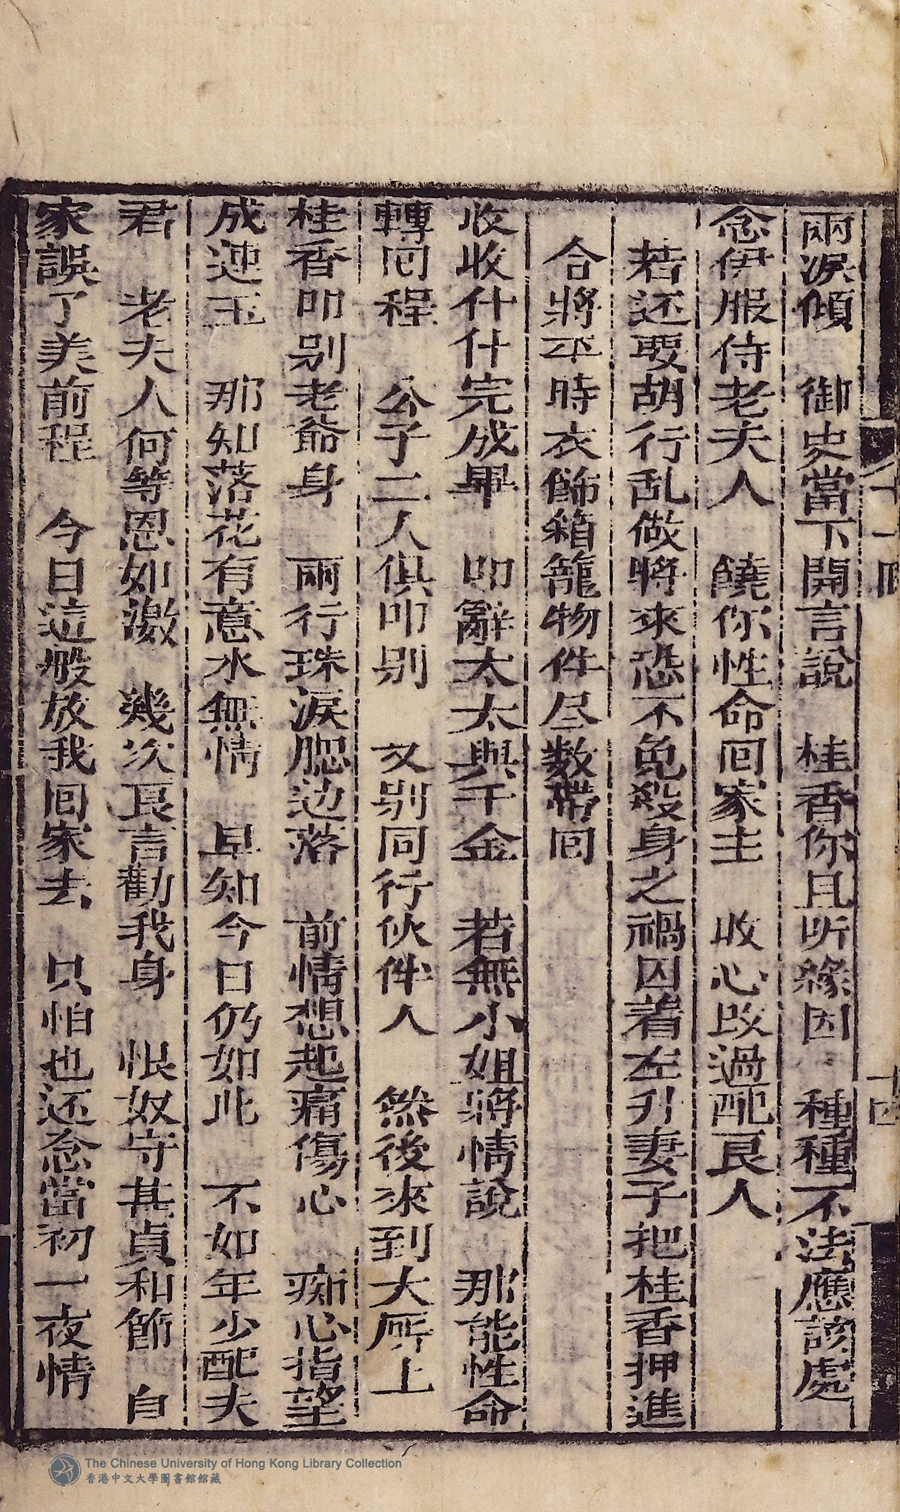 兩淚傾　御史當下開言說　桂香你且听緣因　種種不法應該處
念伊服侍老夫人　饒你性命囘家主　收心改過配良人
若还要胡行乱做將來恐不免殺身之禍因着左升妻子把桂香押進
合將平時衣飾箱籠物件尽数帶囘
收收什什完成畢　叩辭太太與千金　若無小姐將情說　那能性命
轉囘程　公子二人俱叩别　又别同行伙伴人　然後來到大所上
桂香叩别老爺身　兩行珠淚腮边落　前情想起痛傷心　痴心指望
成連玉　那知落花有意水無情　早知今日仍如此　不如年少配夫
君　老夫人何等恩如激　幾次良言勸我身　恨奴守甚貞和節　自
家誤了美前程　今日這般放我囘家去　只怕也还念當初一夜情
十一囘
十四
The Chinese University of Hong Kong Library Collection
香港中文大學圖書館館藏